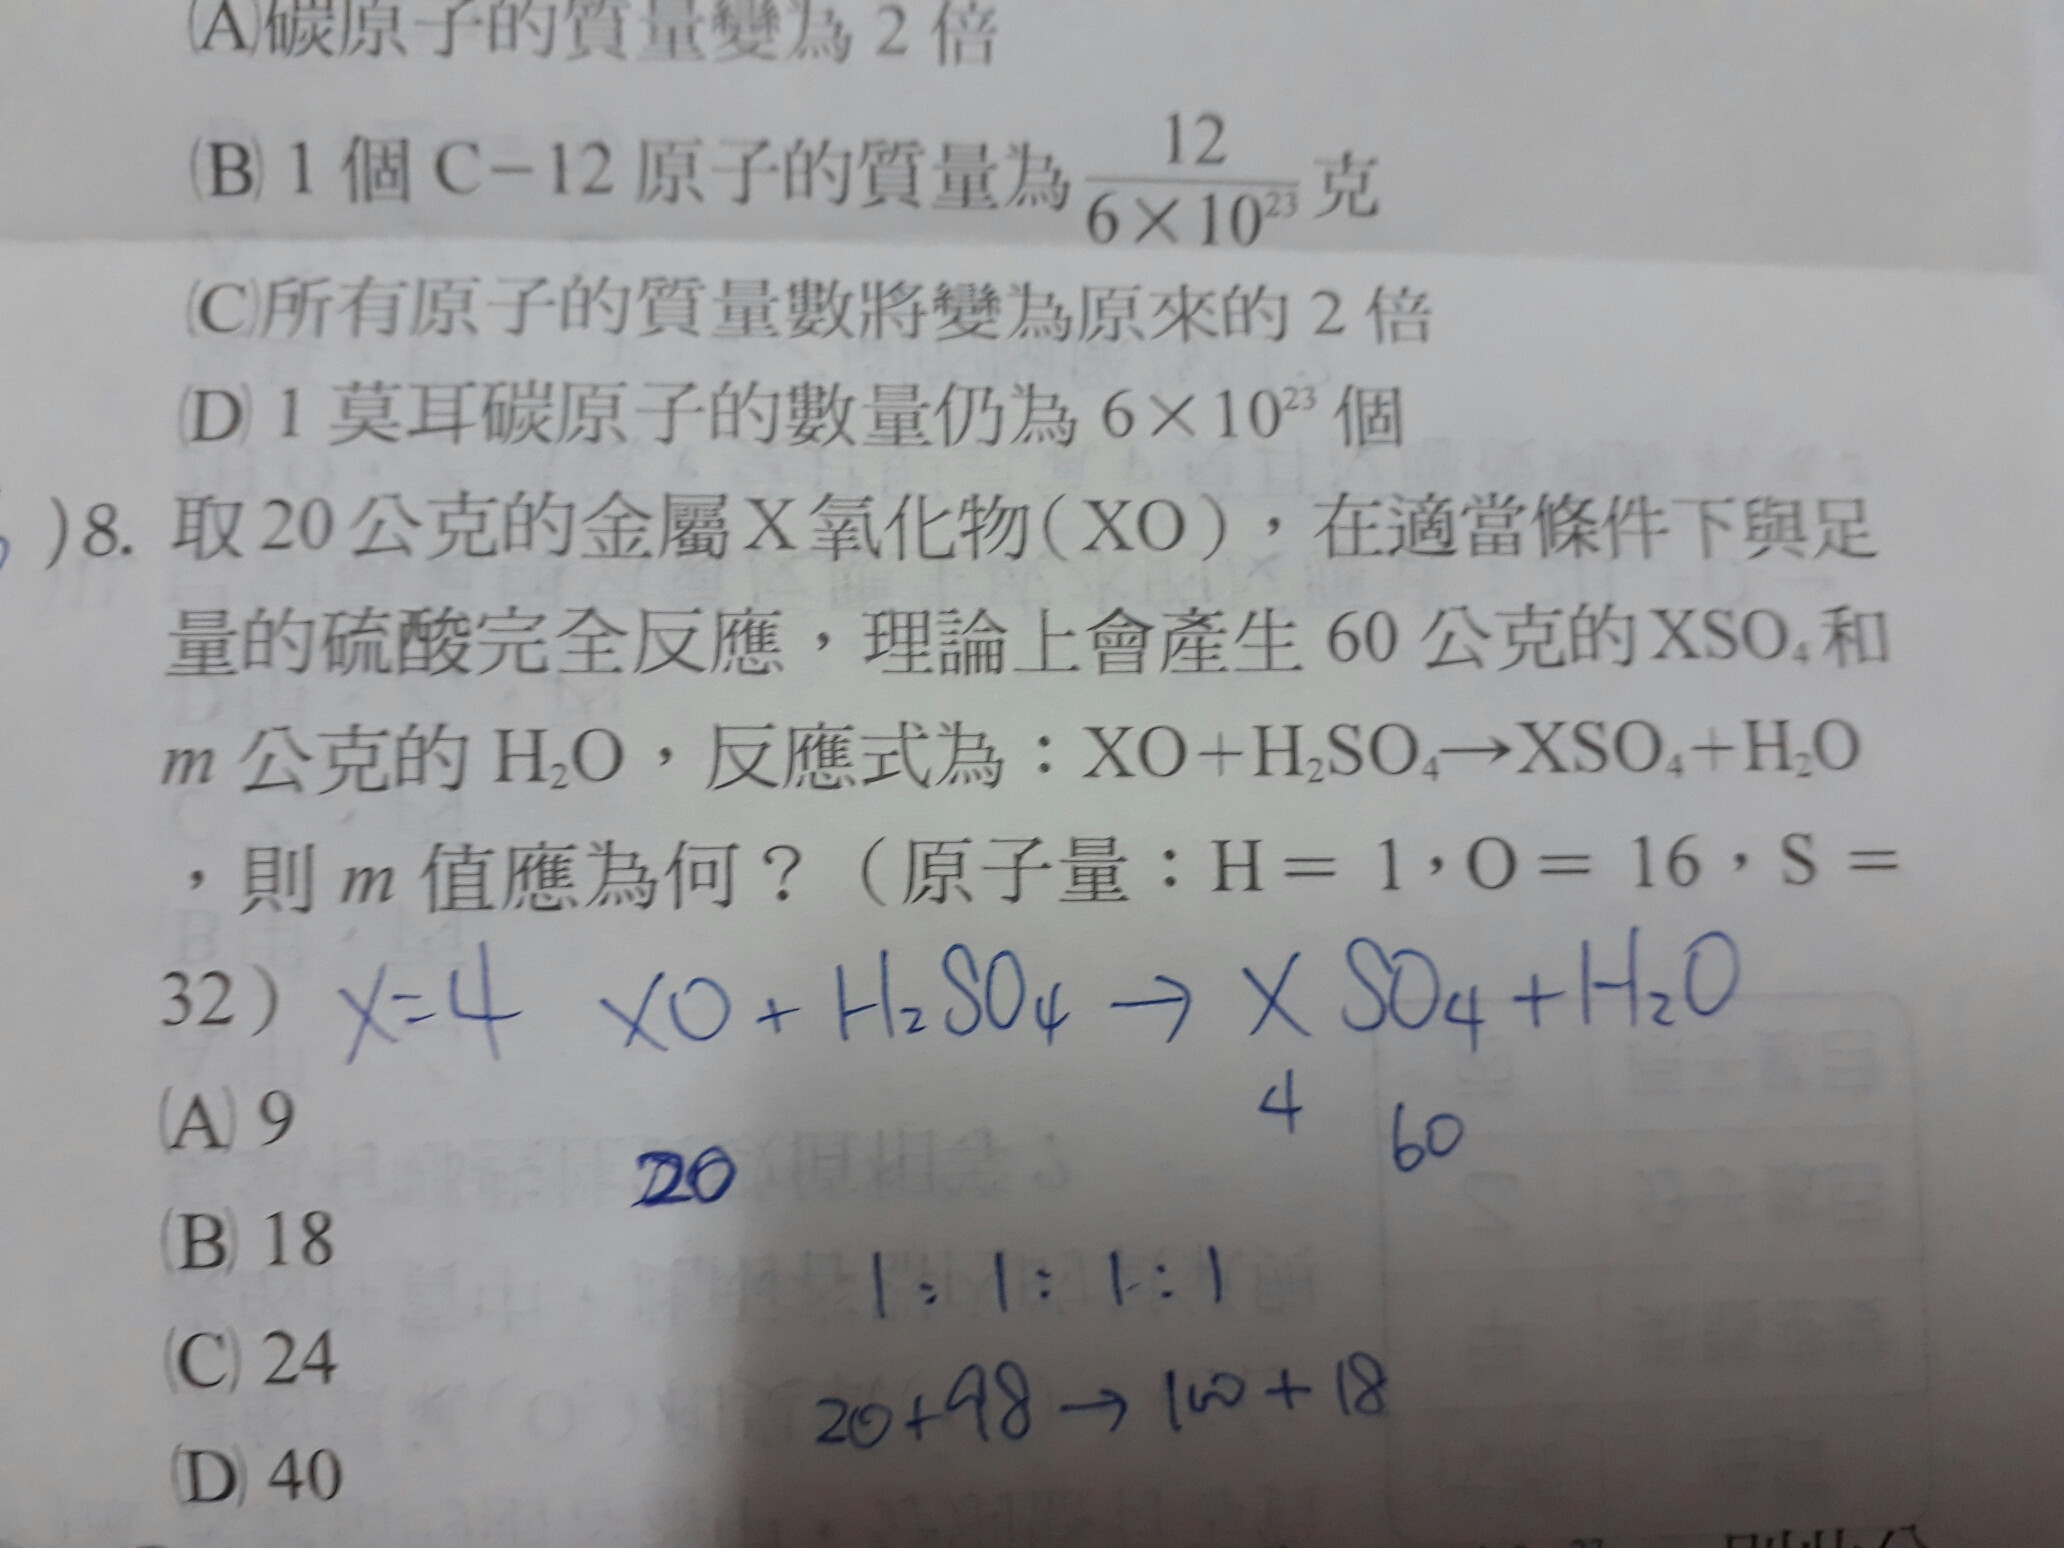 (A)碳原子的質量變為 2 倍
(B) 1 個 C-12 原子的質量為 12/6×10²³ 克
(C)所有原子的質量數將變為原來的 2 倍
(D) 1 莫耳碳原子的數量仍為 6×10²³ 個
)8. 取20公克的金屬X氧化物(XO),在適當條件下與足
量的硫酸完全反應,理論上會產生 60 公克的XSO₄和
m 公克的 H₂O,反應式為:XO+H₂SO₄→XSO₄+H₂O
,則 m 值應為何?(原子量:H= 1,O= 16,S =
32) X=4 XO + H₂SO₄ → X SO₄ + H₂O
(A) 9
4 60
20
(B) 18
1:1:1:1
(C) 24
20+98 → 100+18
(D) 40